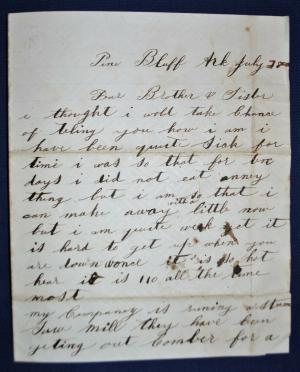 Pine Bluff Ark July
Dear Brother & Sister
i thought i wold take Chance
of teling you how i am i
have been quite Sick for
time i was so that for two
days i did not eat anney
thing but i am so that i
can make away with a little now
but i am quite weak yet it
is hard to get up when you
are down wonce it is so hot
hear it is 110 all the time
most
my Company is runing a Steam
Saw mill they have been
geting out Lomber for a